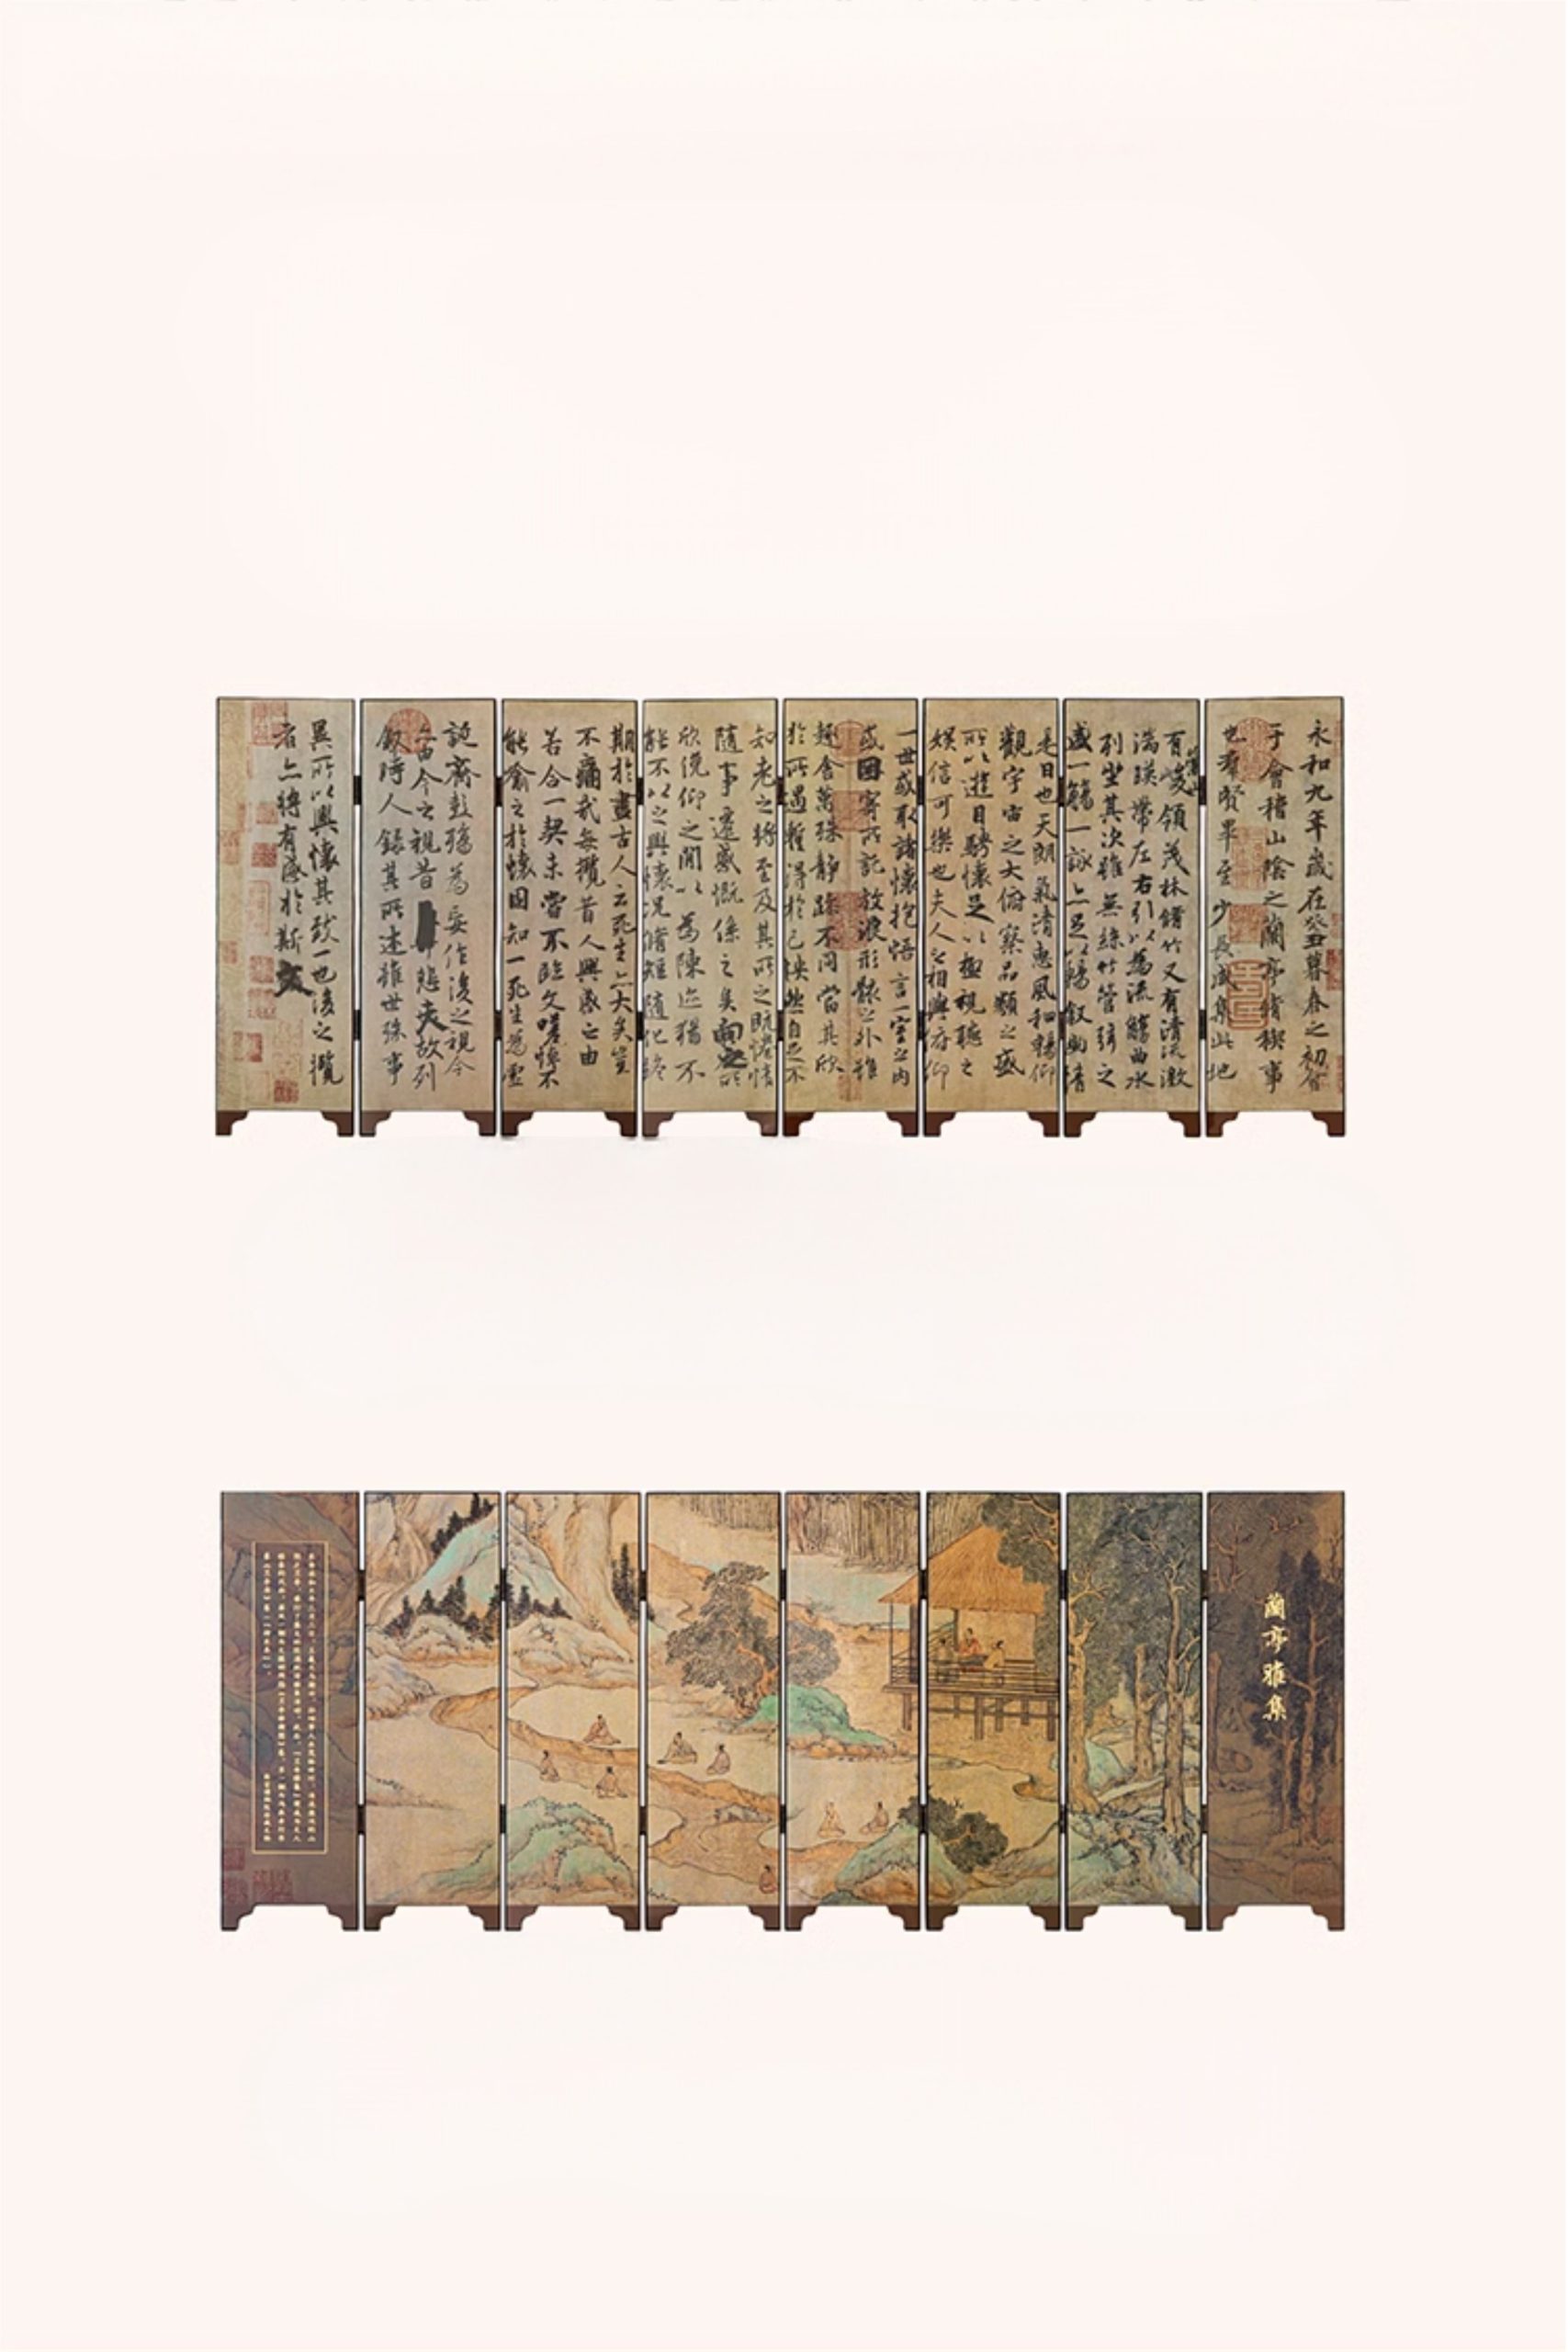 永和九年歲在癸丑暮春之初會
于會稽山陰之蘭亭脩稧事
也羣賢畢至少長咸集此地
有崇山峻領茂林脩竹又有清流激
湍暎帶左右引以為流觴曲水
列坐其次雖無絲竹管弦之
盛一觴一詠亦足以暢叙幽情
是日也天朗氣清惠風和暢仰
觀宇宙之大俯察品類之盛
所以遊目騁懷足以極視聽之
娛信可樂也夫人之相與俯仰
一世或取諸懷抱悟言一室之內
或因寄所託放浪形骸之外雖
趣舍萬殊靜躁不同當其欣
於所遇暫得於己怏然自足不
知老之將至及其所之既惓情
隨事遷感慨係之矣向之所
欣俛仰之閒以為陳迹猶不
能不以之興懷況脩短隨化終
期於盡古人云死生亦大矣豈
不痛哉每攬昔人興感之由
若合一契未嘗不臨文嗟悼不
能喻之於懷固知一死生為虛
誕齊彭殤為妄作後之視今
亦由今之視昔悲夫故列
叙時人錄其所述雖世殊事
異所以興懷其致一也後之攬
者亦將有感於斯文
蘭亭雅集